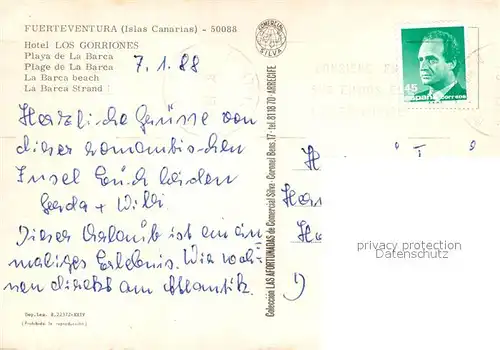 FUERTEVENTURA (Islas Canarias) - 50088
Hotel LOS GORRIONES
Playa de La Barca
Plage de La Barca
La Barca beach
La Barca Strand
7.1.88
Herzliche Grüsse von
dieser romantischen
Insel Euch beiden
Gerda + Willi
Dieser Urlaub ist ein ein
maliges Erlebnis. Wir woh-
nen direkt am Atlantik.
Dep. Leg. B. 22372-XXIV
(Prohibida la reproducción)
COMERCIAL
SILVA
Colección LAS AFORTUNADAS de Comercial Silva - Coronel Bens, 17 - tel. 81 18 70 ARRECIFE
45
España correos
H
Her
privacy protection
Datenschutz